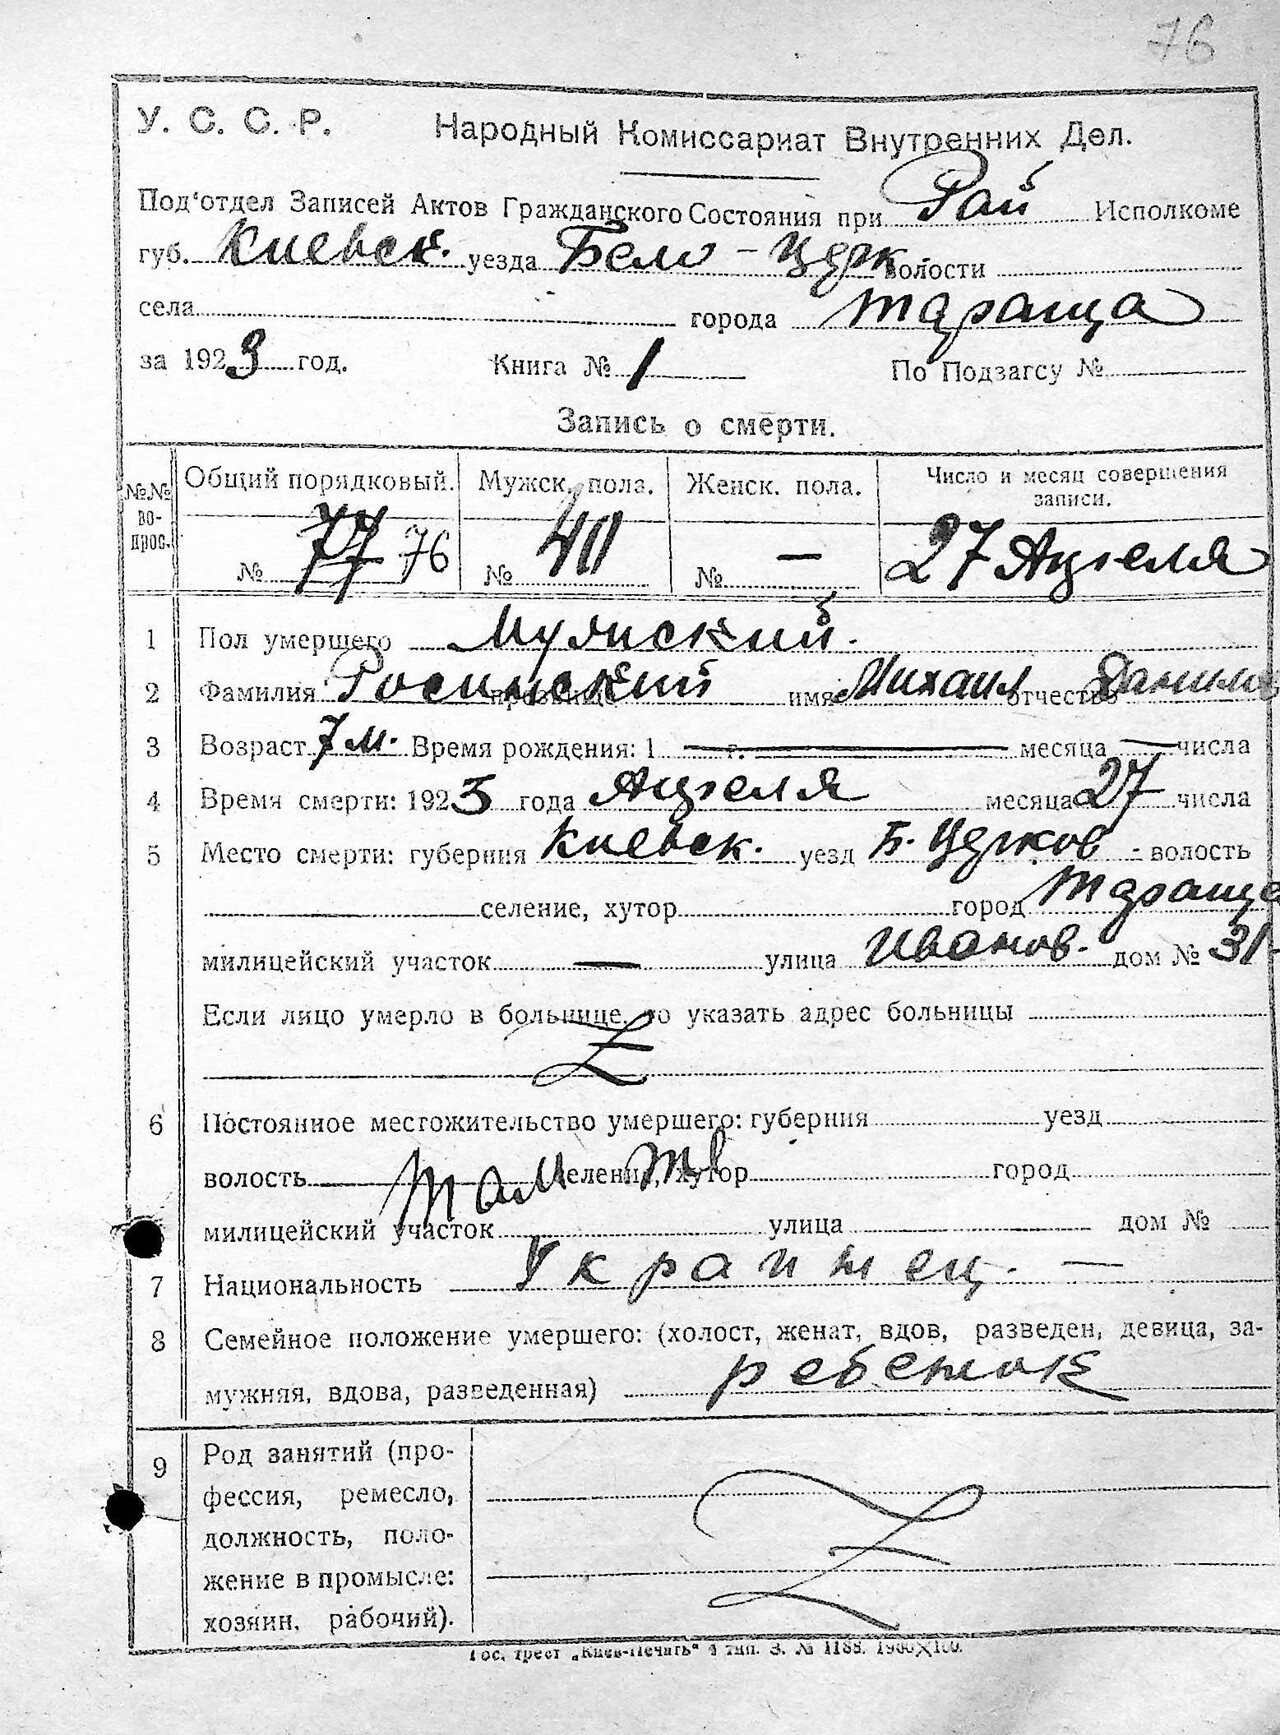 76
У. С. С. Р. Народный Комиссариат Внутренних Дел.
Под'отдел Записей Актов Гражданского Состояния при Рай Исполкоме
губ. Киевск. уезда Бело-Церк. волости
села города Тараща
за 1923 год. Книга № 1 По Подзагсу №
Запись о смерти.
№№ во-прос. Общий порядковый. Мужск. пола. Женск. пола. Число и месяц совершения записи.
№ 77 76 № 40 № — 27 Апреля
1 Пол умершего Мужский.
2 Фамилия Росинский прозвище имя Михаил отчество Данилов
3 Возраст 7 м. Время рождения: 1 — г. — месяца — числа
4 Время смерти: 1923 года Апреля месяца 27 числа
5 Место смерти: губерния Киевск. уезд Б. Церков - волость
селение, хутор город Тараща
милицейский участок — улица Иванов. дом № 31-
Если лицо умерло в больнице, то указать адрес больницы
Z
6 Постоянное местожительство умершего: губерния уезд
волость Там селение, хутор город
милицейский участок улица дом №
7 Национальность Украинец. —
8 Семейное положение умершего: (холост, женат, вдов, разведен, девица, за-
мужняя, вдова, разведенная) ребенок
9 Род занятий (про-
фессия, ремесло,
должность, поло-
жение в промысле:
хозяин, рабочий).
Z
Гос. трест „Киев-Печать“ 4 тип. З. № 1188. 1900×100.